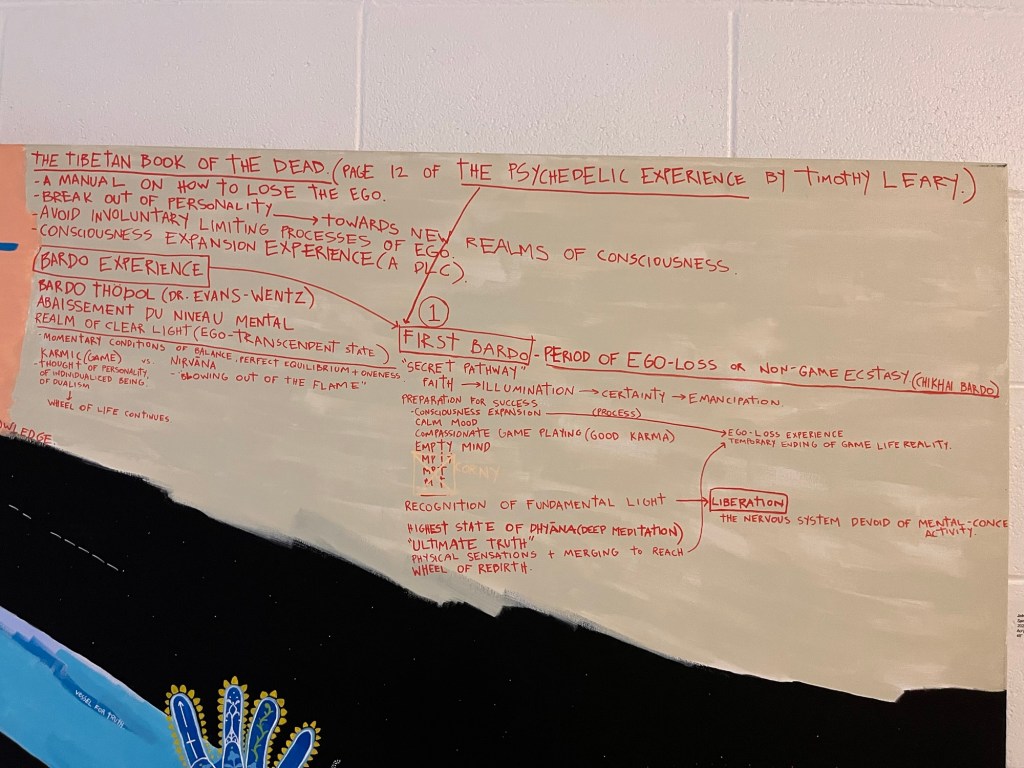 THE TIBETAN BOOK OF THE DEAD. (PAGE 12 OF THE PSYCHEDELIC EXPERIENCE BY TIMOTHY LEARY.)
-A MANUAL ON HOW TO LOSE THE EGO.
-BREAK OUT OF PERSONALITY → TOWARDS NEW REALMS OF CONSCIOUSNESS.
-AVOID INVOLUNTARY LIMITING PROCESSES OF EGO.
-CONSCIOUSNESS EXPANSION EXPERIENCE (A PLC).
BARDO EXPERIENCE
BARDO THÖDOL (DR. EVANS-WENTZ)
ABAISSEMENT DU NIVEAU MENTAL
REALM OF CLEAR LIGHT (EGO-TRANSCENDENT STATE)
-MOMENTARY CONDITIONS OF BALANCE, PERFECT EQUILIBRIUM + ONENESS
KARMIC (GAME) VS. NIRVĀNA
-THOUGHT OF PERSONALITY, OF INDIVIDUALIZED BEING OF DUALISM
-"BLOWING OUT OF THE FLAME"
↓
WHEEL OF LIFE CONTINUES
OWLEDGE
1
FIRST BARDO - PERIOD OF EGO-LOSS OR NON-GAME ECSTASY (CHIKHAI BARDO)
"SECRET PATHWAY"
FAITH → ILLUMINATION → CERTAINTY → EMANCIPATION
PREPARATION FOR SUCCESS
-CONSCIOUSNESS EXPANSION (PROCESS) →EGO-LOSS EXPERIENCE
CALM MOOD
TEMPORARY ENDING OF GAME LIFE REALITY.
COMPASSIONATE GAME PLAYING (GOOD KARMA)
EMPTY MIND
CORNY
RECOGNITION OF FUNDAMENTAL LIGHT → LIBERATION
THE NERVOUS SYSTEM DEVOID OF MENTAL-CONCE
ACTIVITY.
HIGHEST STATE OF DHYĀNA (DEEP MEDITATION)
"ULTIMATE TRUTH"
PHYSICAL SENSATIONS + MERGING TO REACH
WHEEL OF REBIRTH.
VESSEL FOR TRUTH